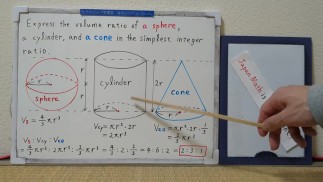 Express the volume ratio of a sphere,
a cylinder, and a cone in the simplest integer
ratio.
r
sphere
cylinder
2r
r
cone
r
Vs = 4/3 πr³
Vcy = πr²·2r
= 2πr³
Vco = πr²·2r·1/3
= 2/3 πr³
Vs : Vcy : Vco
= 4/3 πr³ : 2πr³ : 2/3 πr³ = 4/3 : 2 : 2/3 = 4:6:2 = 2:3:1
Japan Math